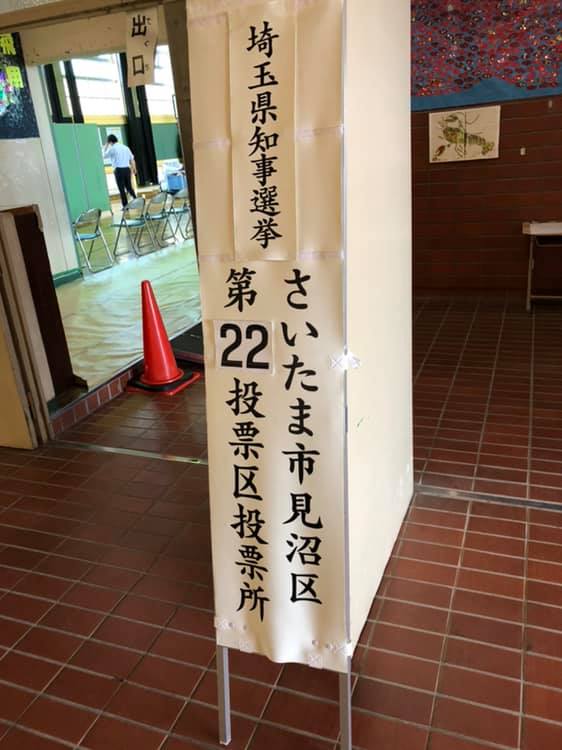 出口
埼玉県知事選挙
さいたま市見沼区
第22投票区投票所